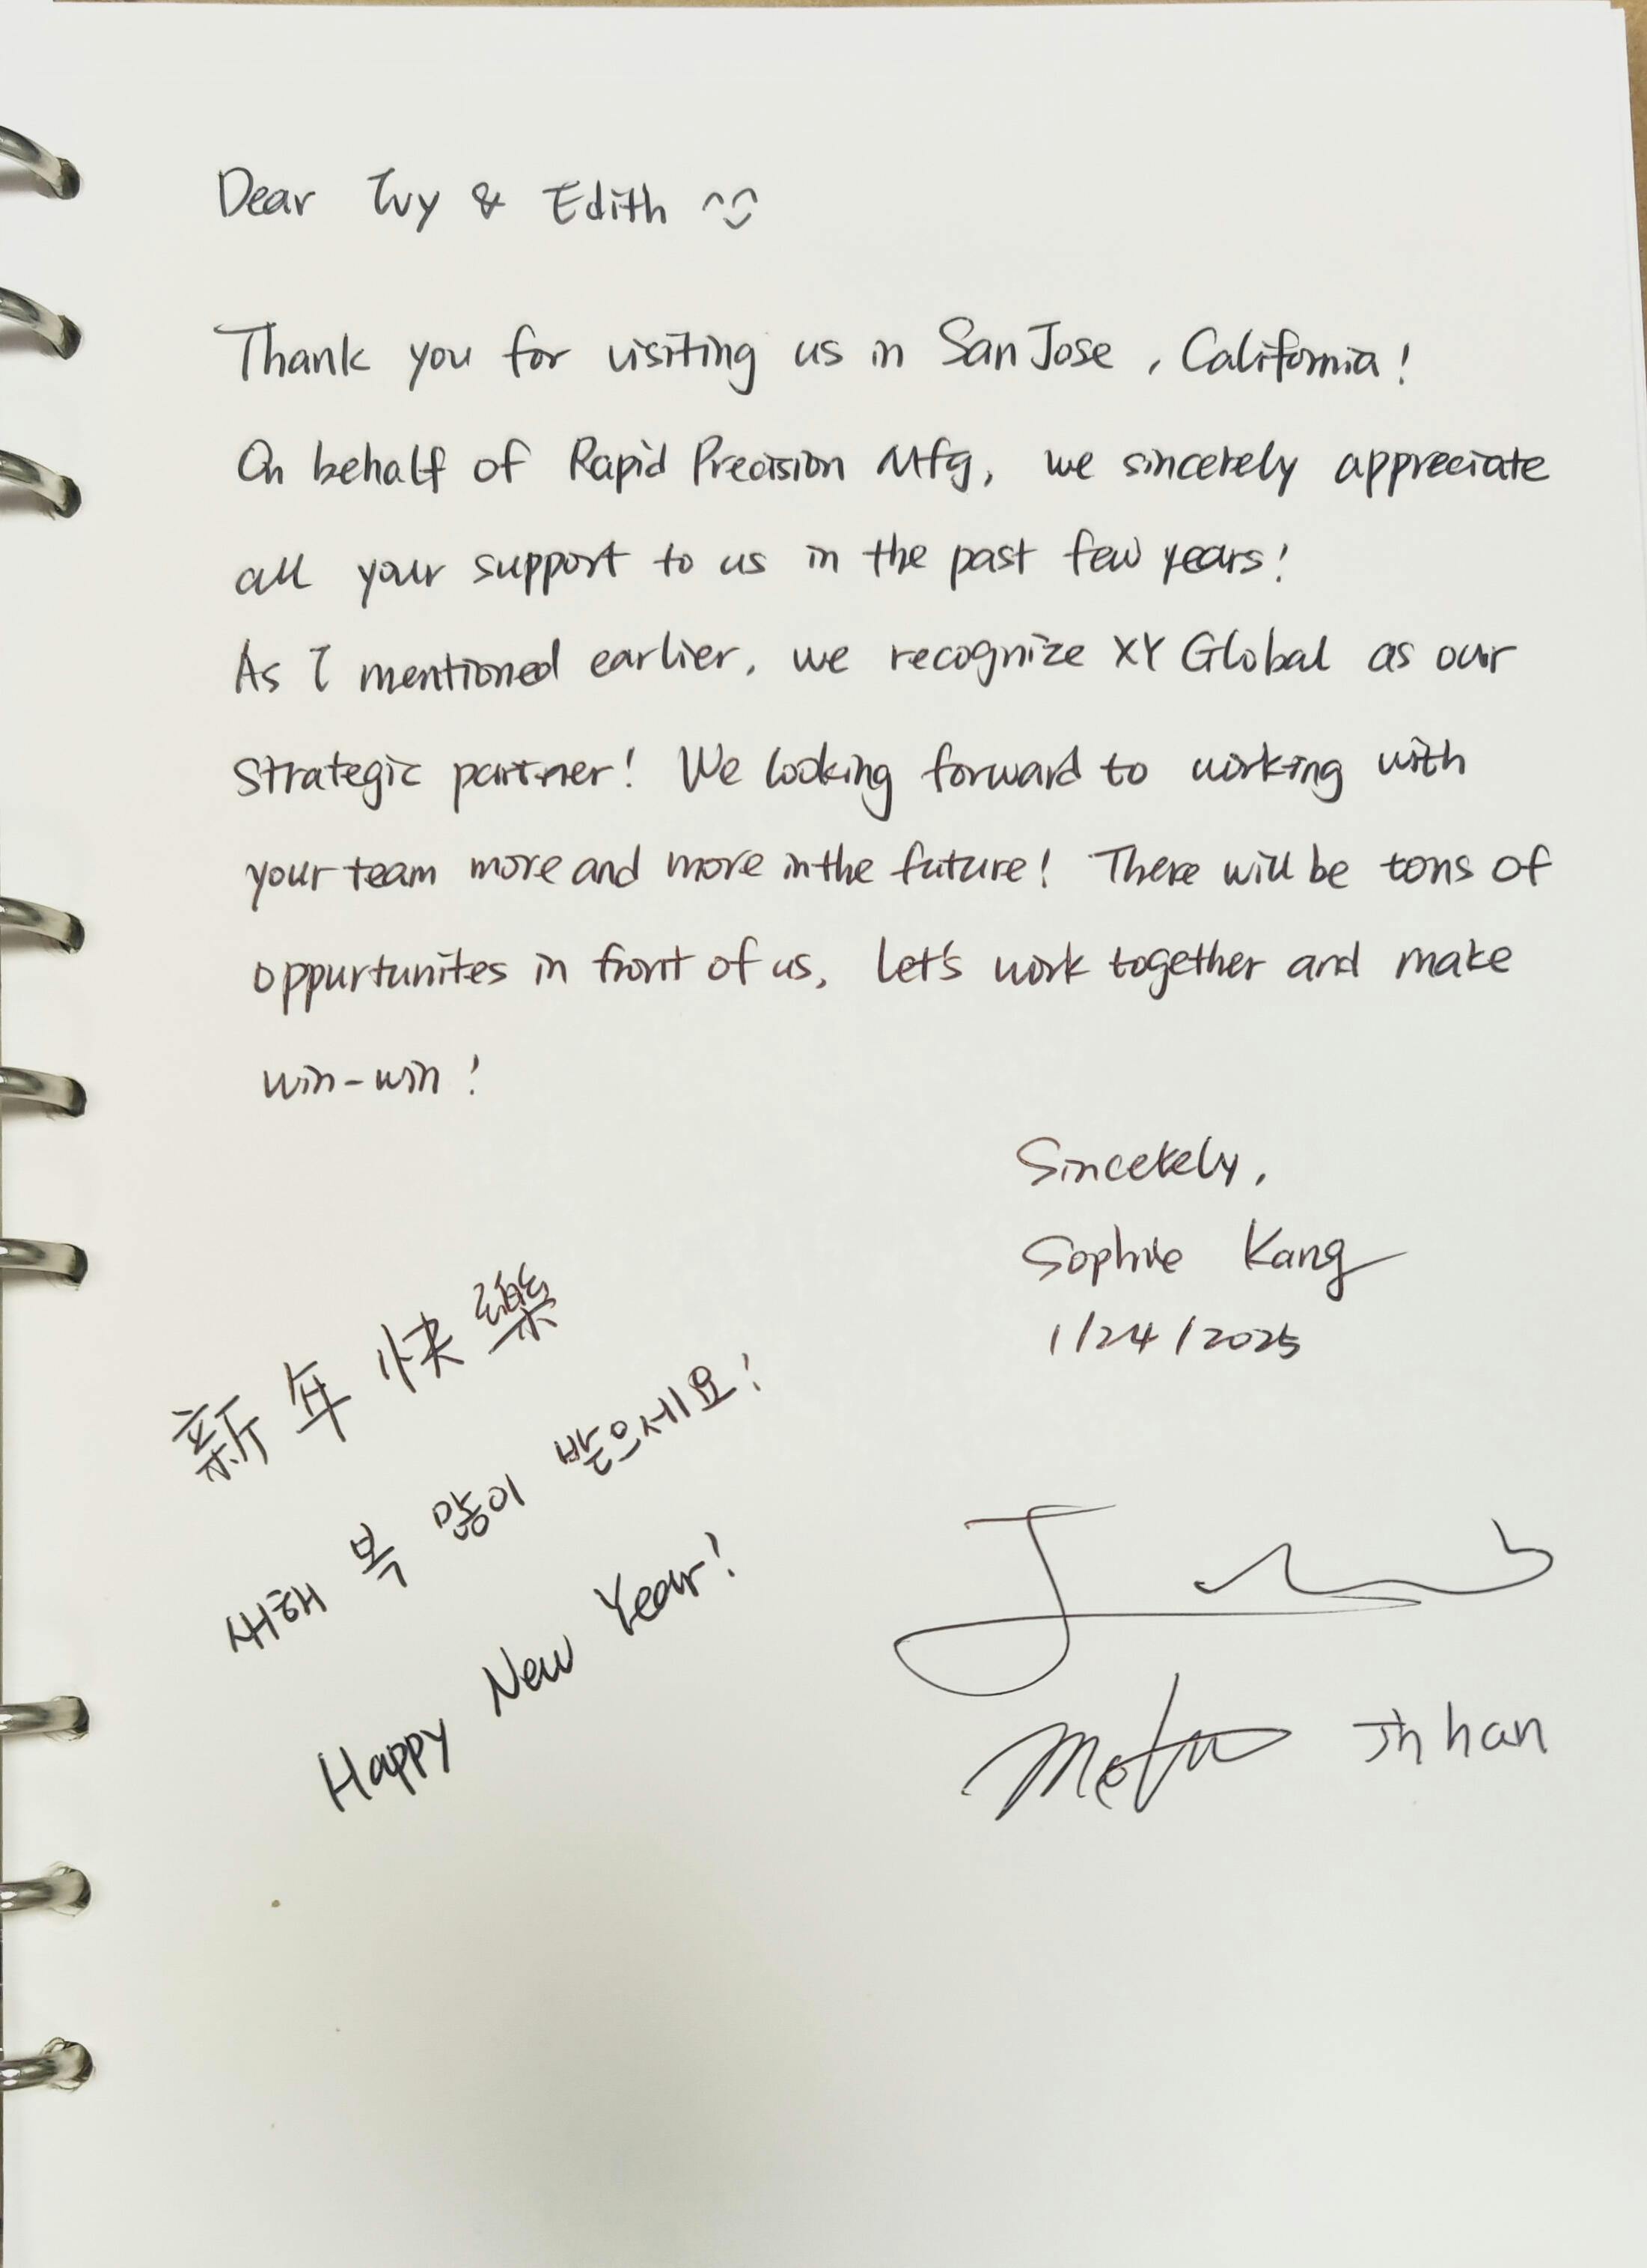 Dear Ivy & Edith ^^
Thank you for visiting us in San Jose, California!
On behalf of Rapid Precision Mfg, we sincerely appreciate
all your support to us in the past few years!
As I mentioned earlier, we recognize XY Global as our
strategic partner! We looking forward to working with
your team more and more in the future! There will be tons of
oppurtunites in front of us, Let's work together and make
win-win!
Sincerely,
Sophie Kang
1/24/2025
新年快樂
새해 복 많이 받으세요!
Happy New Year!
Jhhan